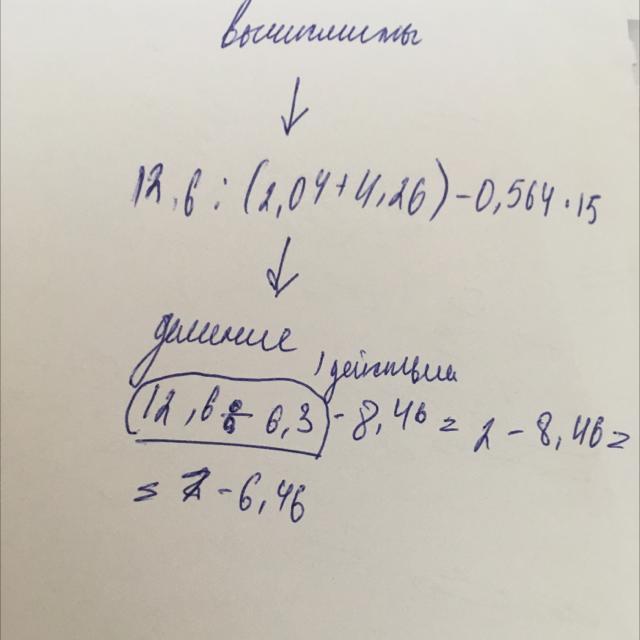 вычислить
12,6 : (2,04 + 4,26) - 0,564 · 15
деление
1 действием
12,6 : 6,3 - 8,46 = 2 - 8,46 =
= - 6,46